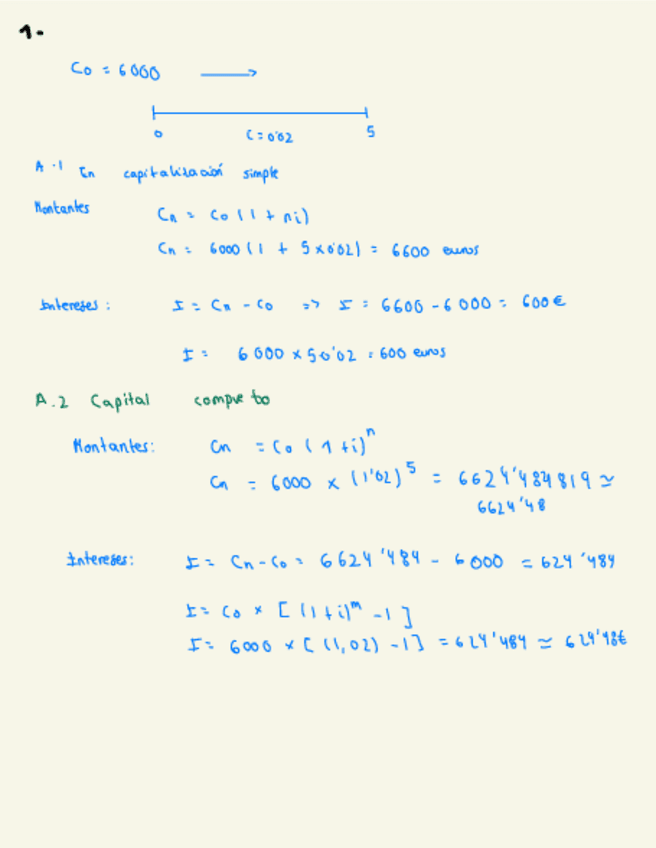 1.
Co = 6000
0 C=0'02 5
A.1 En capitalización simple
Montantes Cn = Co (1 + ni)
Cn = 6000 (1 + 5 x 0'02) = 6600 euros
Intereses: I = Cn - Co => I = 6600 - 6000 = 600€
I = 6000 x 5 0'02 = 600 euros
A.2 Capital compuesto
Montantes: Cn = Co (1+i)^n
Cn = 6000 x (1'02)^5 = 6624'484819 ≃
6624'48
Intereses: I = Cn - Co = 6624'484 - 6000 = 624'484
I = Co x [(1+i)^m - 1]
I = 6000 x [(1,02) - 1] = 624'484 ≃ 624'48€